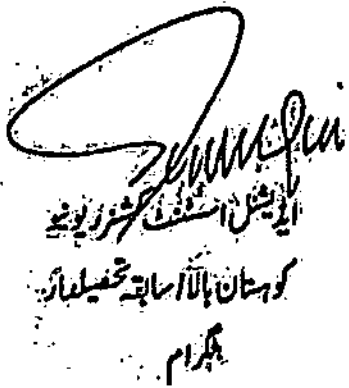 ایڈیشنل اسسٹنٹ کمشنر ریونیو
کوہستان بالا/سابقہ تحصیلدار
بٹگرام